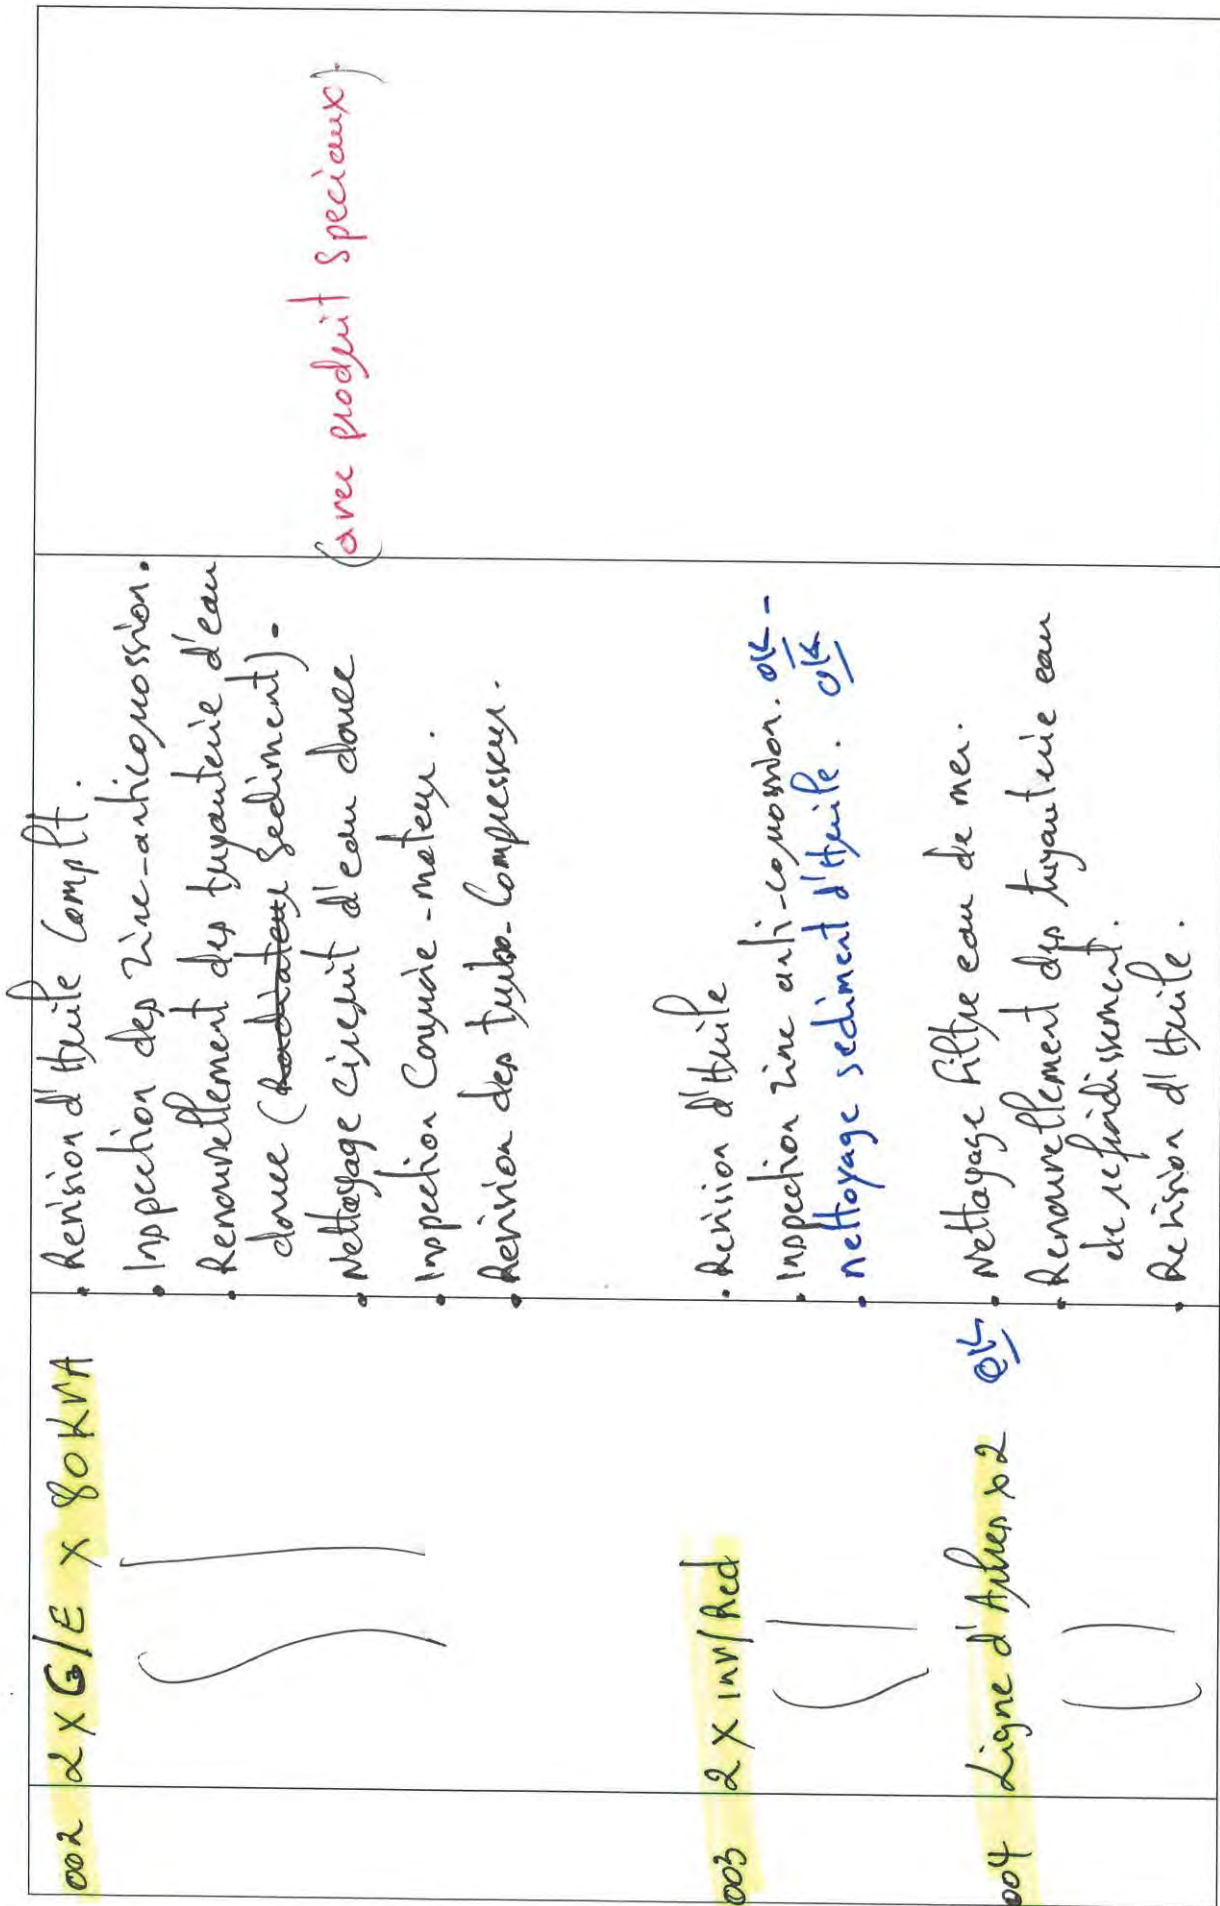 002 2 X G/E X 80 KVA
• Revision d'Huile Complt.
• Inspection des Zinc-anticorrossion.
• Renouvellement des tuyauterie d'eau
douce (Radiateur Sediment).
• Nettoyage circuit d'eau douce (avec produit Speciaux).
• Inspection Courroie-moteur.
• Revision des turbo-Compresseur.
003 2 X inv/Red
• Revision d'Huile
• Inspection zinc anti-corrosion. OK -
• nettoyage sediment d'Huile. OK
004 Ligne d'Arbres x 2 OK
• Nettoyage filtre eau de mer.
• Renouvellement des tuyauterie eau
de refroidissement.
• Revision d'Huile.